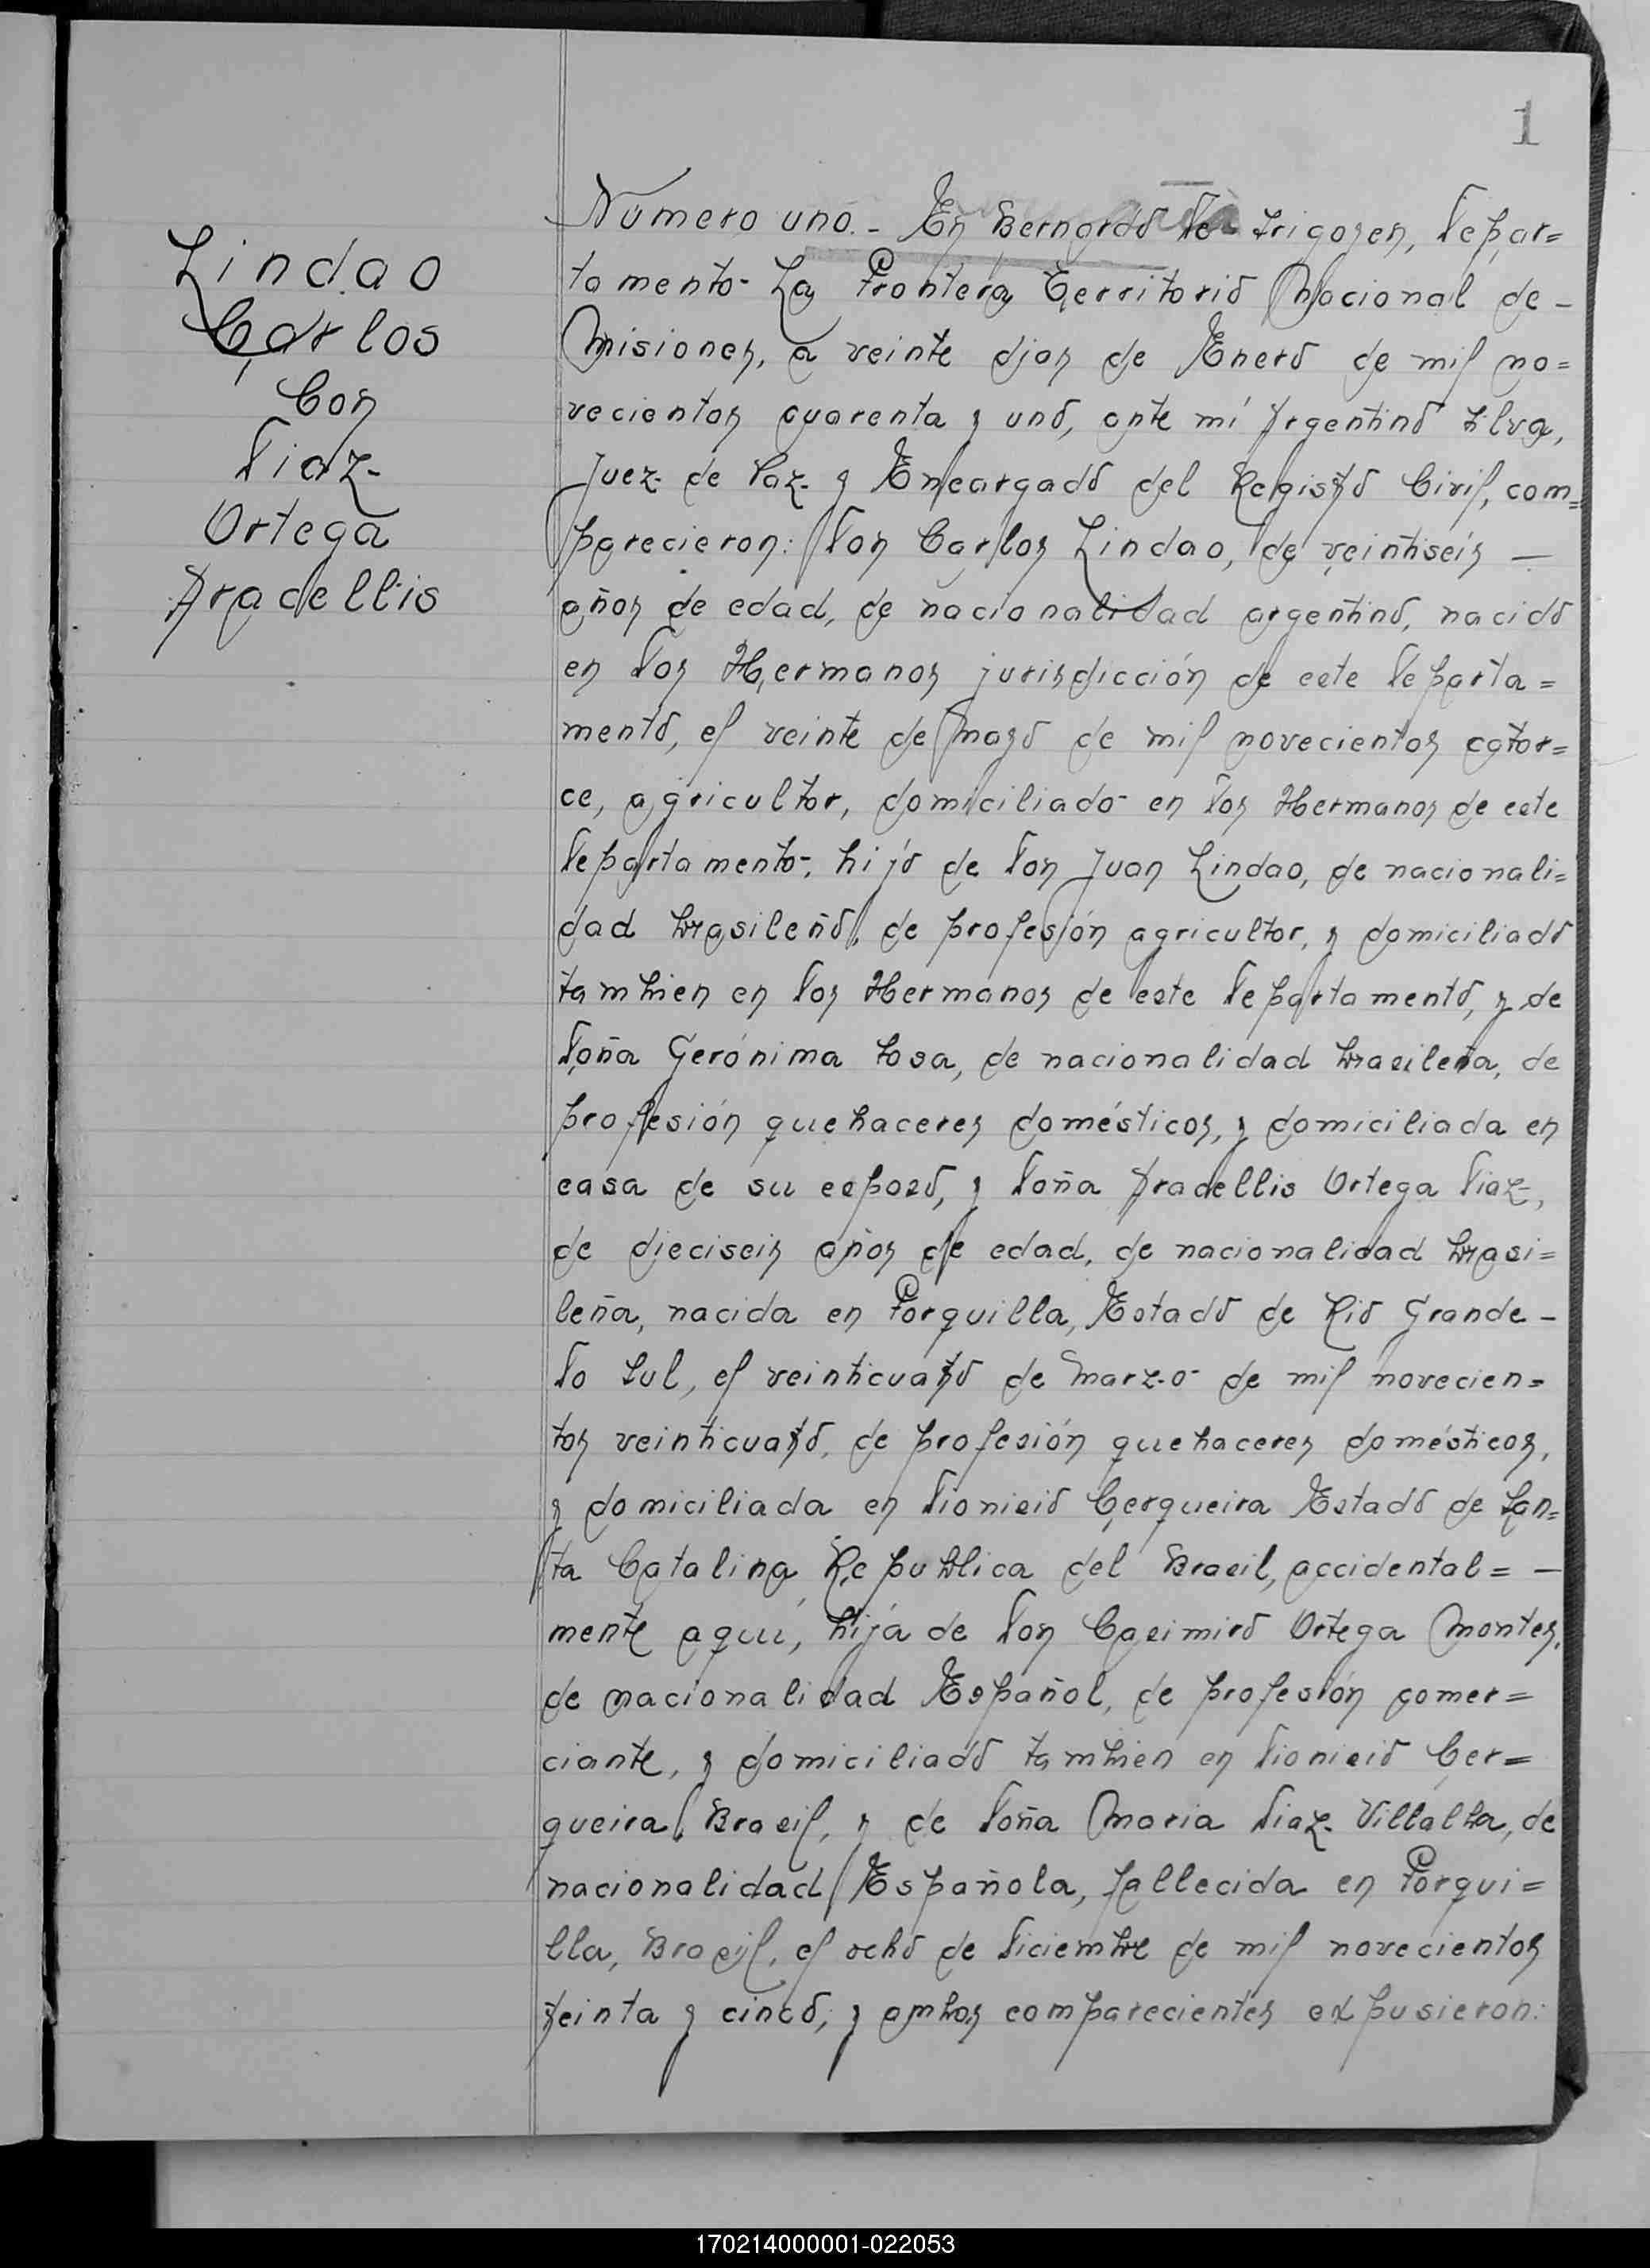 1
Lindao
Carlos
Con
Diaz
Ortega
Aradellis
Número uno.- En Bernardo de Irigoyen, Depar=
tamento La Frontera Territorio Nacional de -
Misiones, a veinte dias de Enero de mil no=
vecientos cuarenta y uno, ante mí Argentino Silva,
Juez de Paz y Encargado del Registro Civil, com=
parecieron: Don Carlos Lindao, de veintiseis —
años de edad, de nacionalidad argentino, nacido
en Dos Hermanos jurisdicción de este Departa=
mento, el veinte de Mayo de mil novecientos cator=
ce, agricultor, domiciliado en Dos Hermanos de este
Departamento, hijo de Don Juan Lindao, de nacionali=
dad brasileño, de profesión agricultor, y domiciliado
tambien en Dos Hermanos de este Departamento, y de
Doña Gerónima Sosa, de nacionalidad brasileña, de
profesión quehaceres domésticos, y domiciliada en
casa de su esposo, y Doña Aradellis Ortega Diaz,
de dieciseis años de edad, de nacionalidad brasi=
leña, nacida en Forquilla, Estado de Rio Grande -
Do Sul, el veinticuatro de Marzo de mil novecien=
tos veinticuatro, de profesión quehaceres domésticos,
y domiciliada en Dionisio Cerqueira Estado de San=
ta Catalina Republica del Brasil, accidental= —
mente aquí, hija de Don Casimiro Ortega Montes,
de nacionalidad Español, de profesión comer=
ciante, y domiciliado tambien en Dionisio Cer=
queira, Brasil, y de Doña Maria Diaz Villalba, de
nacionalidad Española, fallecida en Forqui=
lla, Brasil, el ocho de Diciembre de mil novecientos
treinta y cinco; y ambos comparecientes expusieron:
170214000001-022053